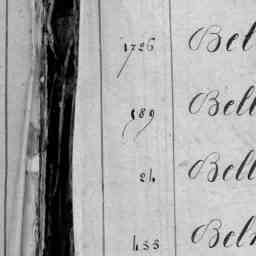 1726 Bel
589 Bell
24 Bell
455 Bel